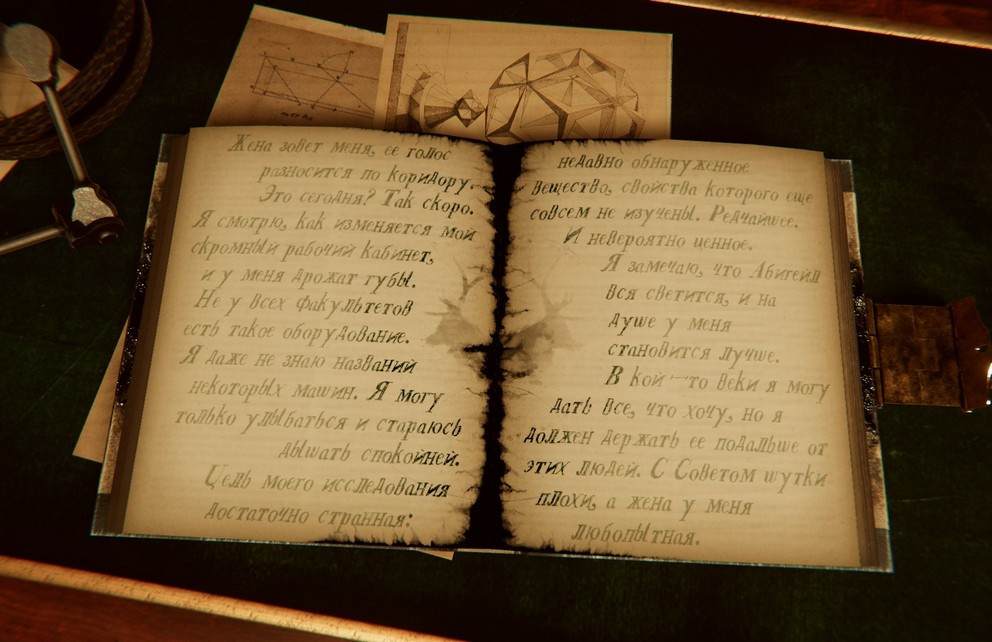 Жена зовет меня, ее голос
разносится по коридору.
Это сегодня? Так скоро.
Я смотрю, как изменяется мой
скромный рабочий кабинет,
и у меня дрожат губы.
Не у всех факультетов
есть такое оборудование.
Я даже не знаю названий
некоторых машин. Я могу
только улыбаться и стараюсь
дышать спокойней.
Цель моего исследования
достаточно странная:
недавно обнаруженное
вещество, свойства которого еще
совсем не изучены. Редчайшее.
И невероятно ценное.
Я замечаю, что Абигейл
вся светится, и на
душе у меня
становится лучше.
В кои-то веки я могу
дать все, что хочу, но я
должен держать ее подальше от
этих людей. С Советом шутки
плохи, а жена у меня
любопытная.